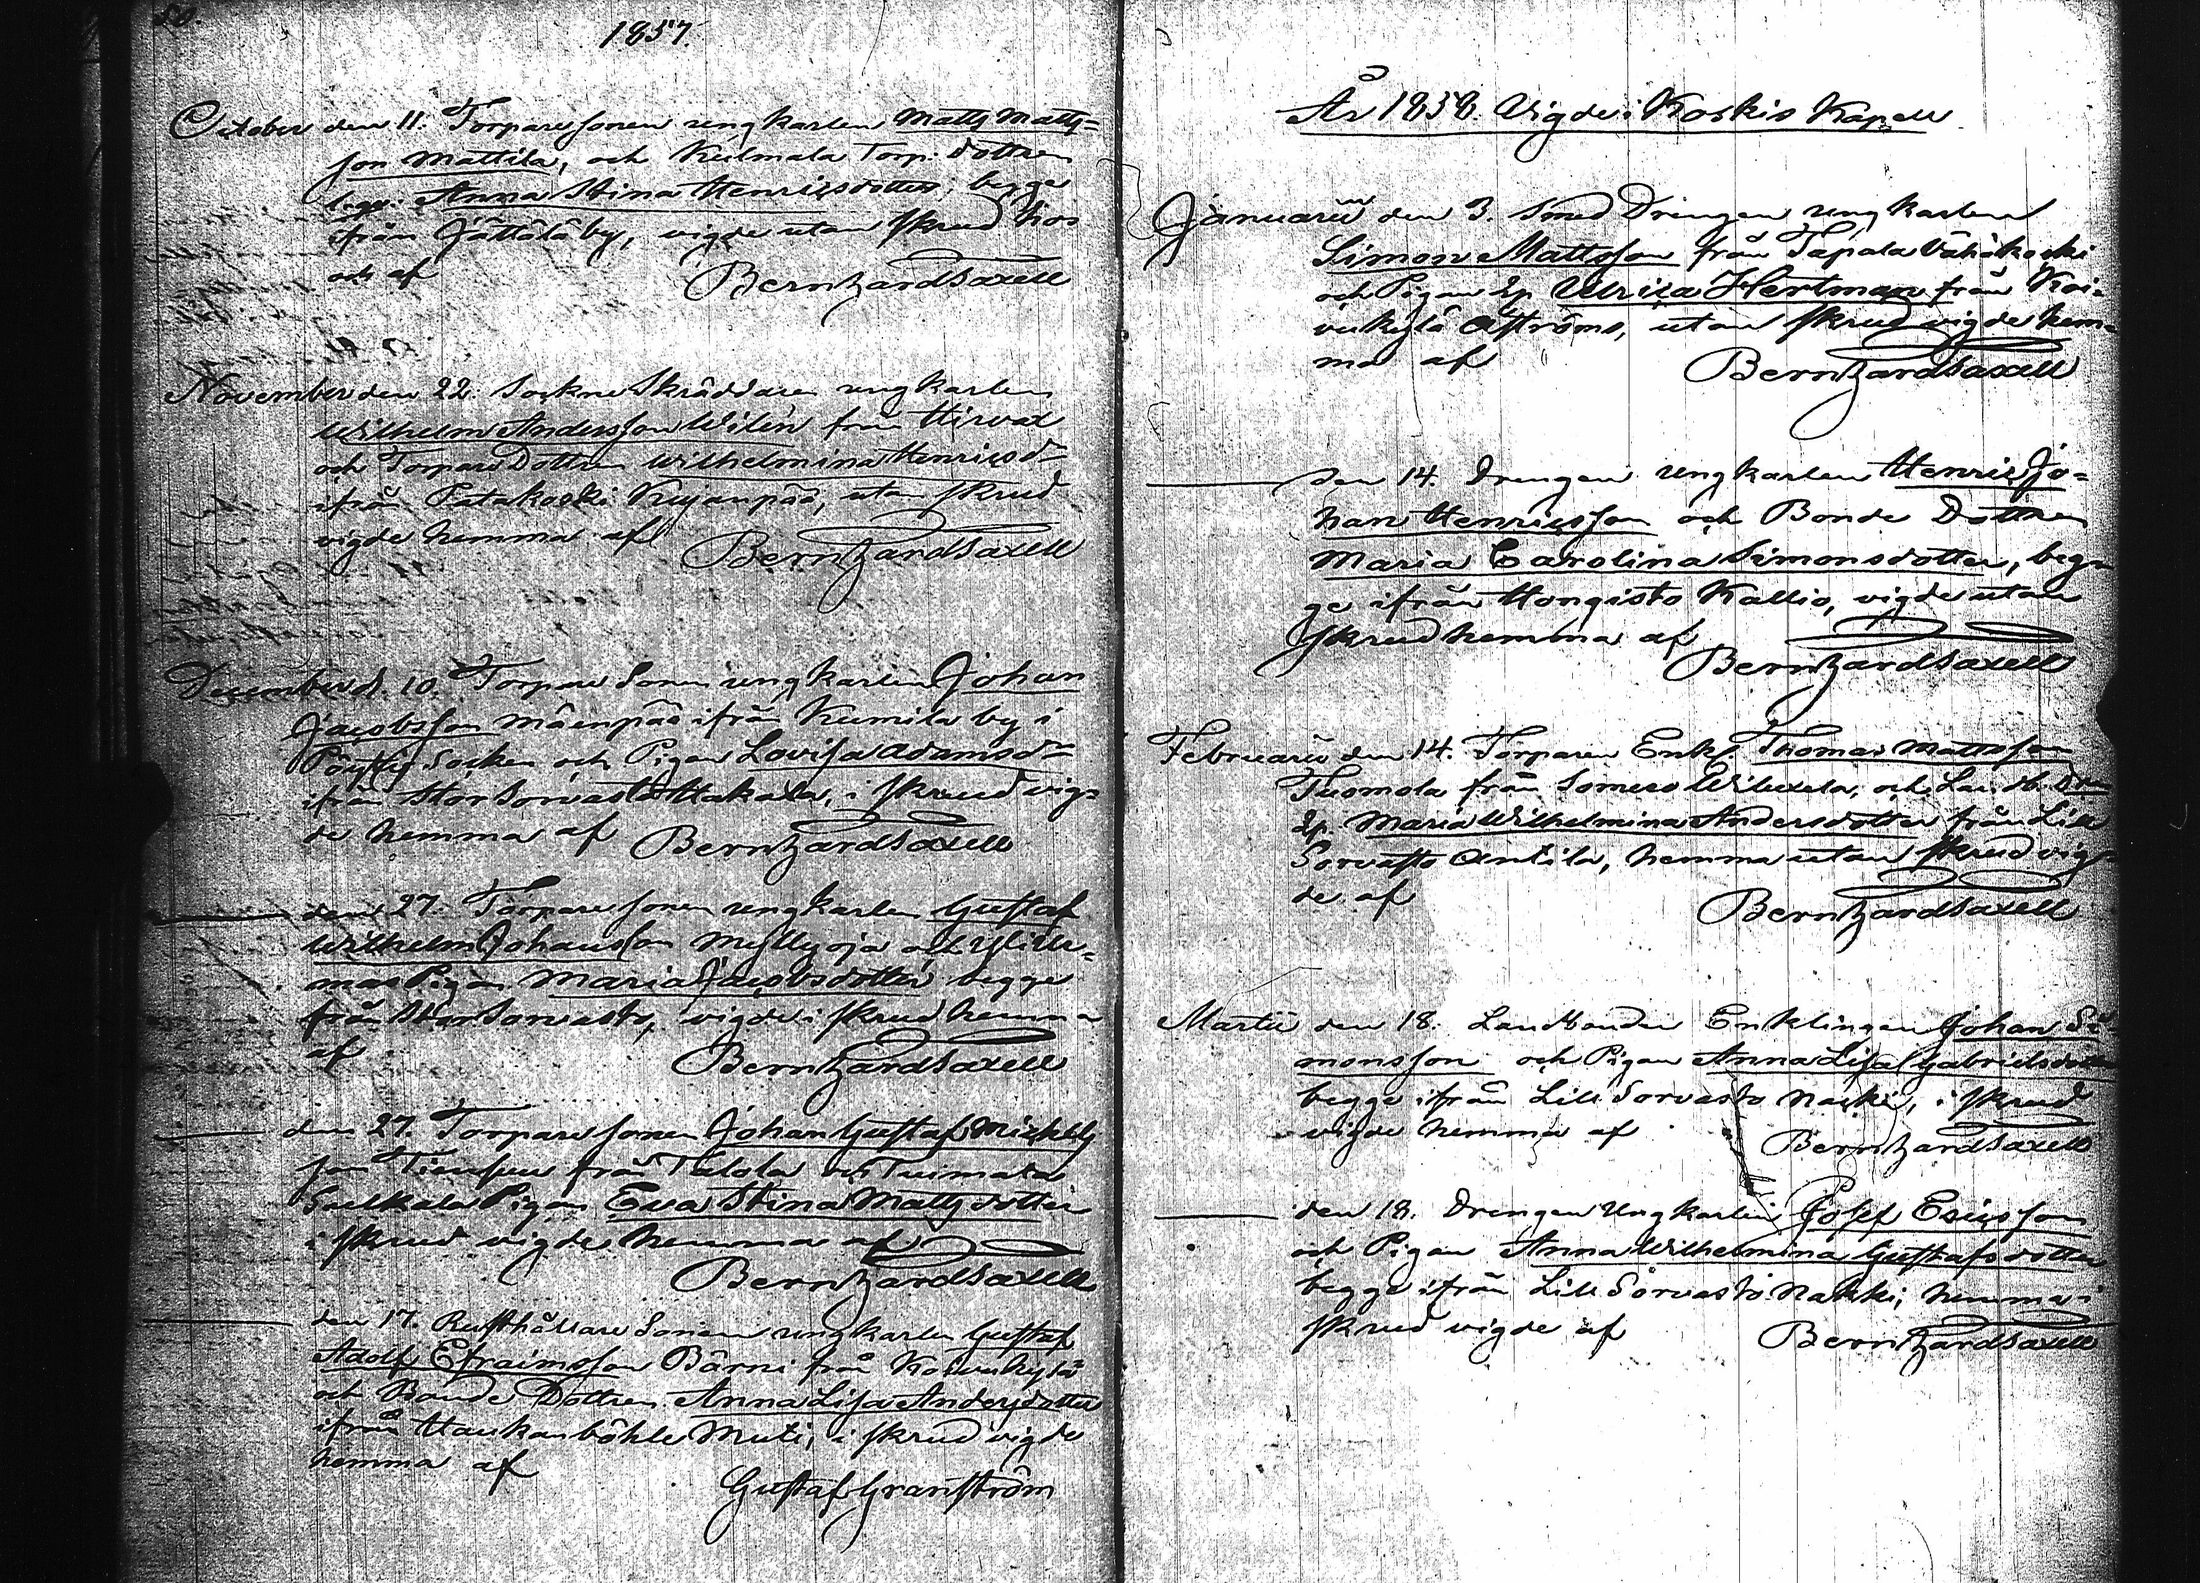 50.
1857.
October den 11. Torpare sonen ungkarlen Matts Matts=
son Mattila, och Kulmala Torp. Dottren
Anna Stina Henricsdotter; begge
ifrån Jättölä by, vigde utan skrud hos
och af
Bernhard Saxell
November den 22. Sockne Skräddaren ungkarlen
Wilhelm Andersson Wilén från Hirvax
och Torpare Dottren Wilhelmina Henricsdr
ifrån Patakoski Kujanpää, utan skrud
vigde hemma af
Bernhard Saxell
December d. 10. Torpare Sonen ungkarlen Johan
Jacobsson Mäenpää ifrån Kumila by i
Pöytis Socken och Pigan Lovisa Adamsdr
ifrån Stor Sorvasto Hakala, i skrud vig=
de hemma af
Bernhard Saxell
den 27. Torpare sonen ungkarlen Gustaf
Wilhelm Johansson Myllyoja och
mas Pigan Maria Jacobsdotter begge
från Stor Sorvasto, vigde i skrud hemma
af
Bernhard Saxell
den 27. Torpare sonen Johan Gustaf Michels
son från Talola och Tuimala
Pigan Eva Stina Mattsdotter
i skrud vigde hemma af
Bernhard Saxell
den 17. Rusthållare Sonen ungkarlen Gustaf
Adolf Efraimsson Bärni från Koivukylä
och Bonde Dottren Anna Lisa Andersdotter
ifrån Haukanböhle Muti, i skrud vigde
hemma af
Gustaf Granström
År 1858. Vigde i Koskis Kapell
Januarii den 3. Smed Drengen ungkarlen
Simon Mattsson från Tapala Vähäkoski
och Pigan Ep. Ulrica Hertman från Koi=
vukylä Åströms, utan skrud vigde hem=
ma af
Bernhard Saxell
den 14. Drengen ungkarlen Henric Jo=
han Henricsson och Bonde Dottren
Maria Carolina Simonsdotter, beg=
ge ifrån Hongisto Kallio, vigde utan
skrud hemma af
Bernhard Saxell
Februarii den 14. Torparen Enkl. Thomas Mattsson
Tuomola från Somero Wiluxela, och
Ep. Maria Wilhelmina Andersdotter från Lill
Sorvasto Antila, hemma utan skrud vig=
de af
Bernhard Saxell
Martii den 18. Landbonden Enklingen Johan Si=
monsson och Pigan Anna Lisa Gabrielsdotter
begge ifrån Lill Sorvasto Nacki, i skrud
vigde hemma af
Bernhard Saxell
den 18. Drengen Ungkarlen Josef Ericsson
och Pigan Anna Wilhelmina Gustafsdotter
begge ifrån Lill Sorvasto Nakki, hemma i
skrud vigde af
Bernhard Saxell